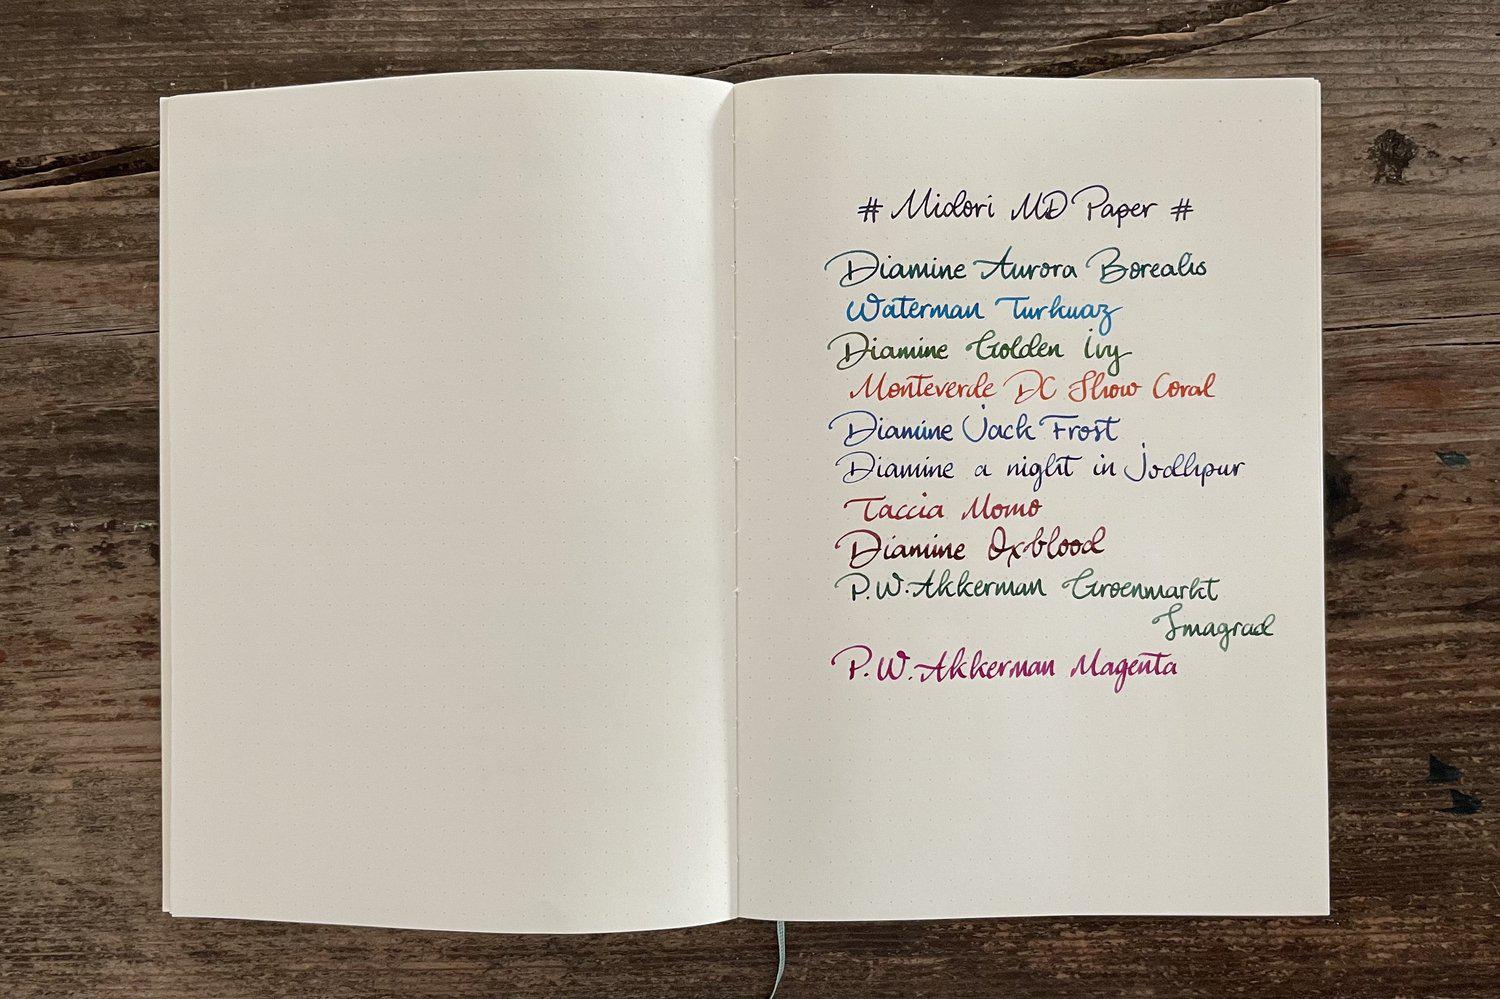 # Midori MD Paper #
Diamine Aurora Borealis
Waterman Turkuaz
Diamine Golden Ivy
Monteverde DC Show Coral
Diamine Jack Frost
Diamine a night in Jodhpur
Taccia Momo
Diamine Oxblood
P.W. Akkerman Groenmarkt
Smagrad
P.W. Akkerman Magenta